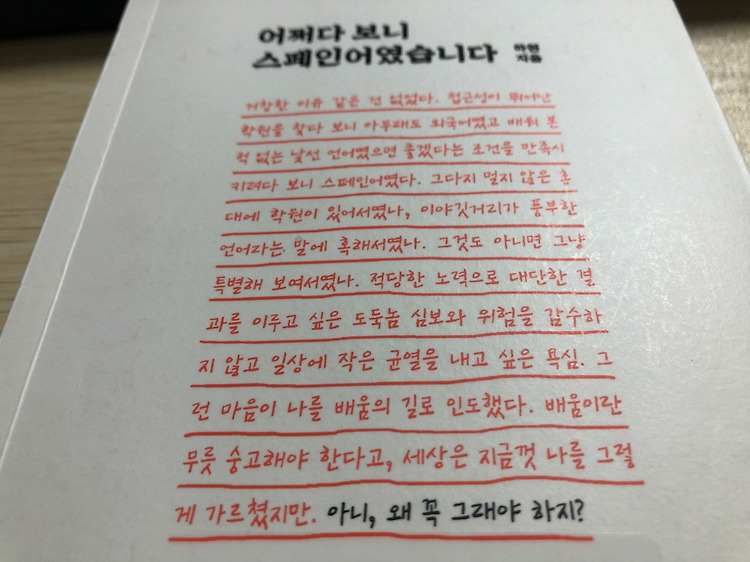 어쩌다 보니
스페인어였습니다 하현
지음
거창한 이유 같은 건 없었다. 접근성이 뛰어난
학원을 찾다 보니 아무래도 외국어였고 배워 본
적 없는 낯선 언어였으면 좋겠다는 조건을 만족시
키려다 보니 스페인어였다. 그다지 멀지 않은 홍
대에 학원이 있어서였나, 이야깃거리가 풍부한
언어라는 말에 혹해서였나. 그것도 아니면 그냥
특별해 보여서였나. 적당한 노력으로 대단한 결
과를 이루고 싶은 도둑놈 심보와 위험을 감수하
지 않고 일상에 작은 균열을 내고 싶은 욕심. 그
런 마음이 나를 배움의 길로 인도했다. 배움이란
무릇 숭고해야 한다고, 세상은 지금껏 나를 그렇
게 가르쳤지만. 아니, 왜 꼭 그래야 하지?